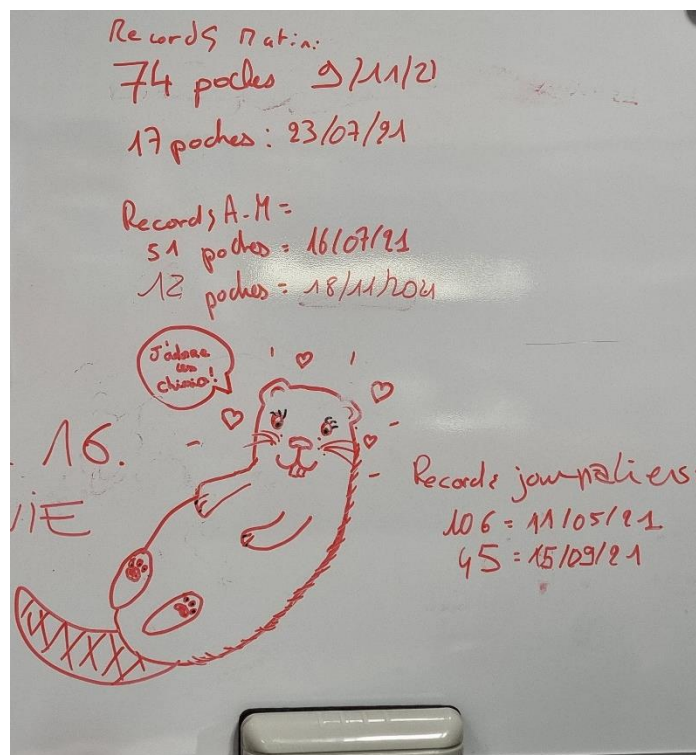 Records Matin:
74 poches 9/11/21
17 poches : 23/07/21
Records A-M =
51 poches = 16/07/21
12 poches = 18/11/2021
J'adore
les
chimio!
16.
Records journaliers
106 = 11/05/21
45 = 15/09/21